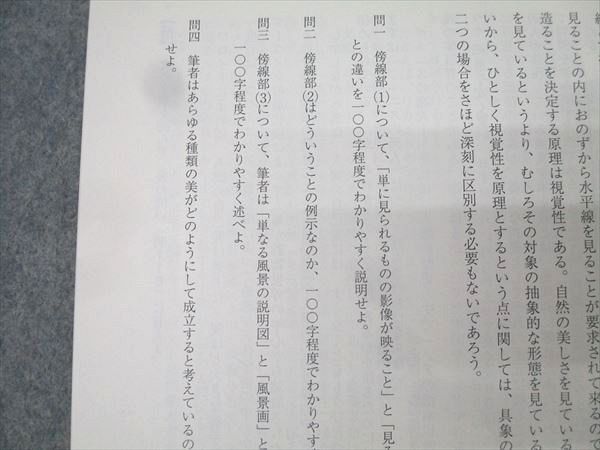 見ることの内におのずから水平線を見ることが要求されて来るので
造ることを決定する原理は視覚性である。自然の美しさを見ている
を見ているというより、むしろその対象の抽象的な形態を見ている
いから、ひとしく視覚性を原理とするという点に関しては、具象の
二つの場合をさほど深刻に区別する必要もないであろう。
問一 傍線部⑴について、「単に見られるものの影像が映ること」と「見る
との違いを一〇〇字程度でわかりやすく説明せよ。
問二 傍線部⑵はどういうことの例示なのか、一〇〇字程度でわかりやす
問三 傍線部⑶について、筆者は「単なる風景の説明図」と「風景画」と
一〇〇字程度でわかりやすく述べよ。
問四 筆者はあらゆる種類の美がどのようにして成立すると考えているの
せよ。